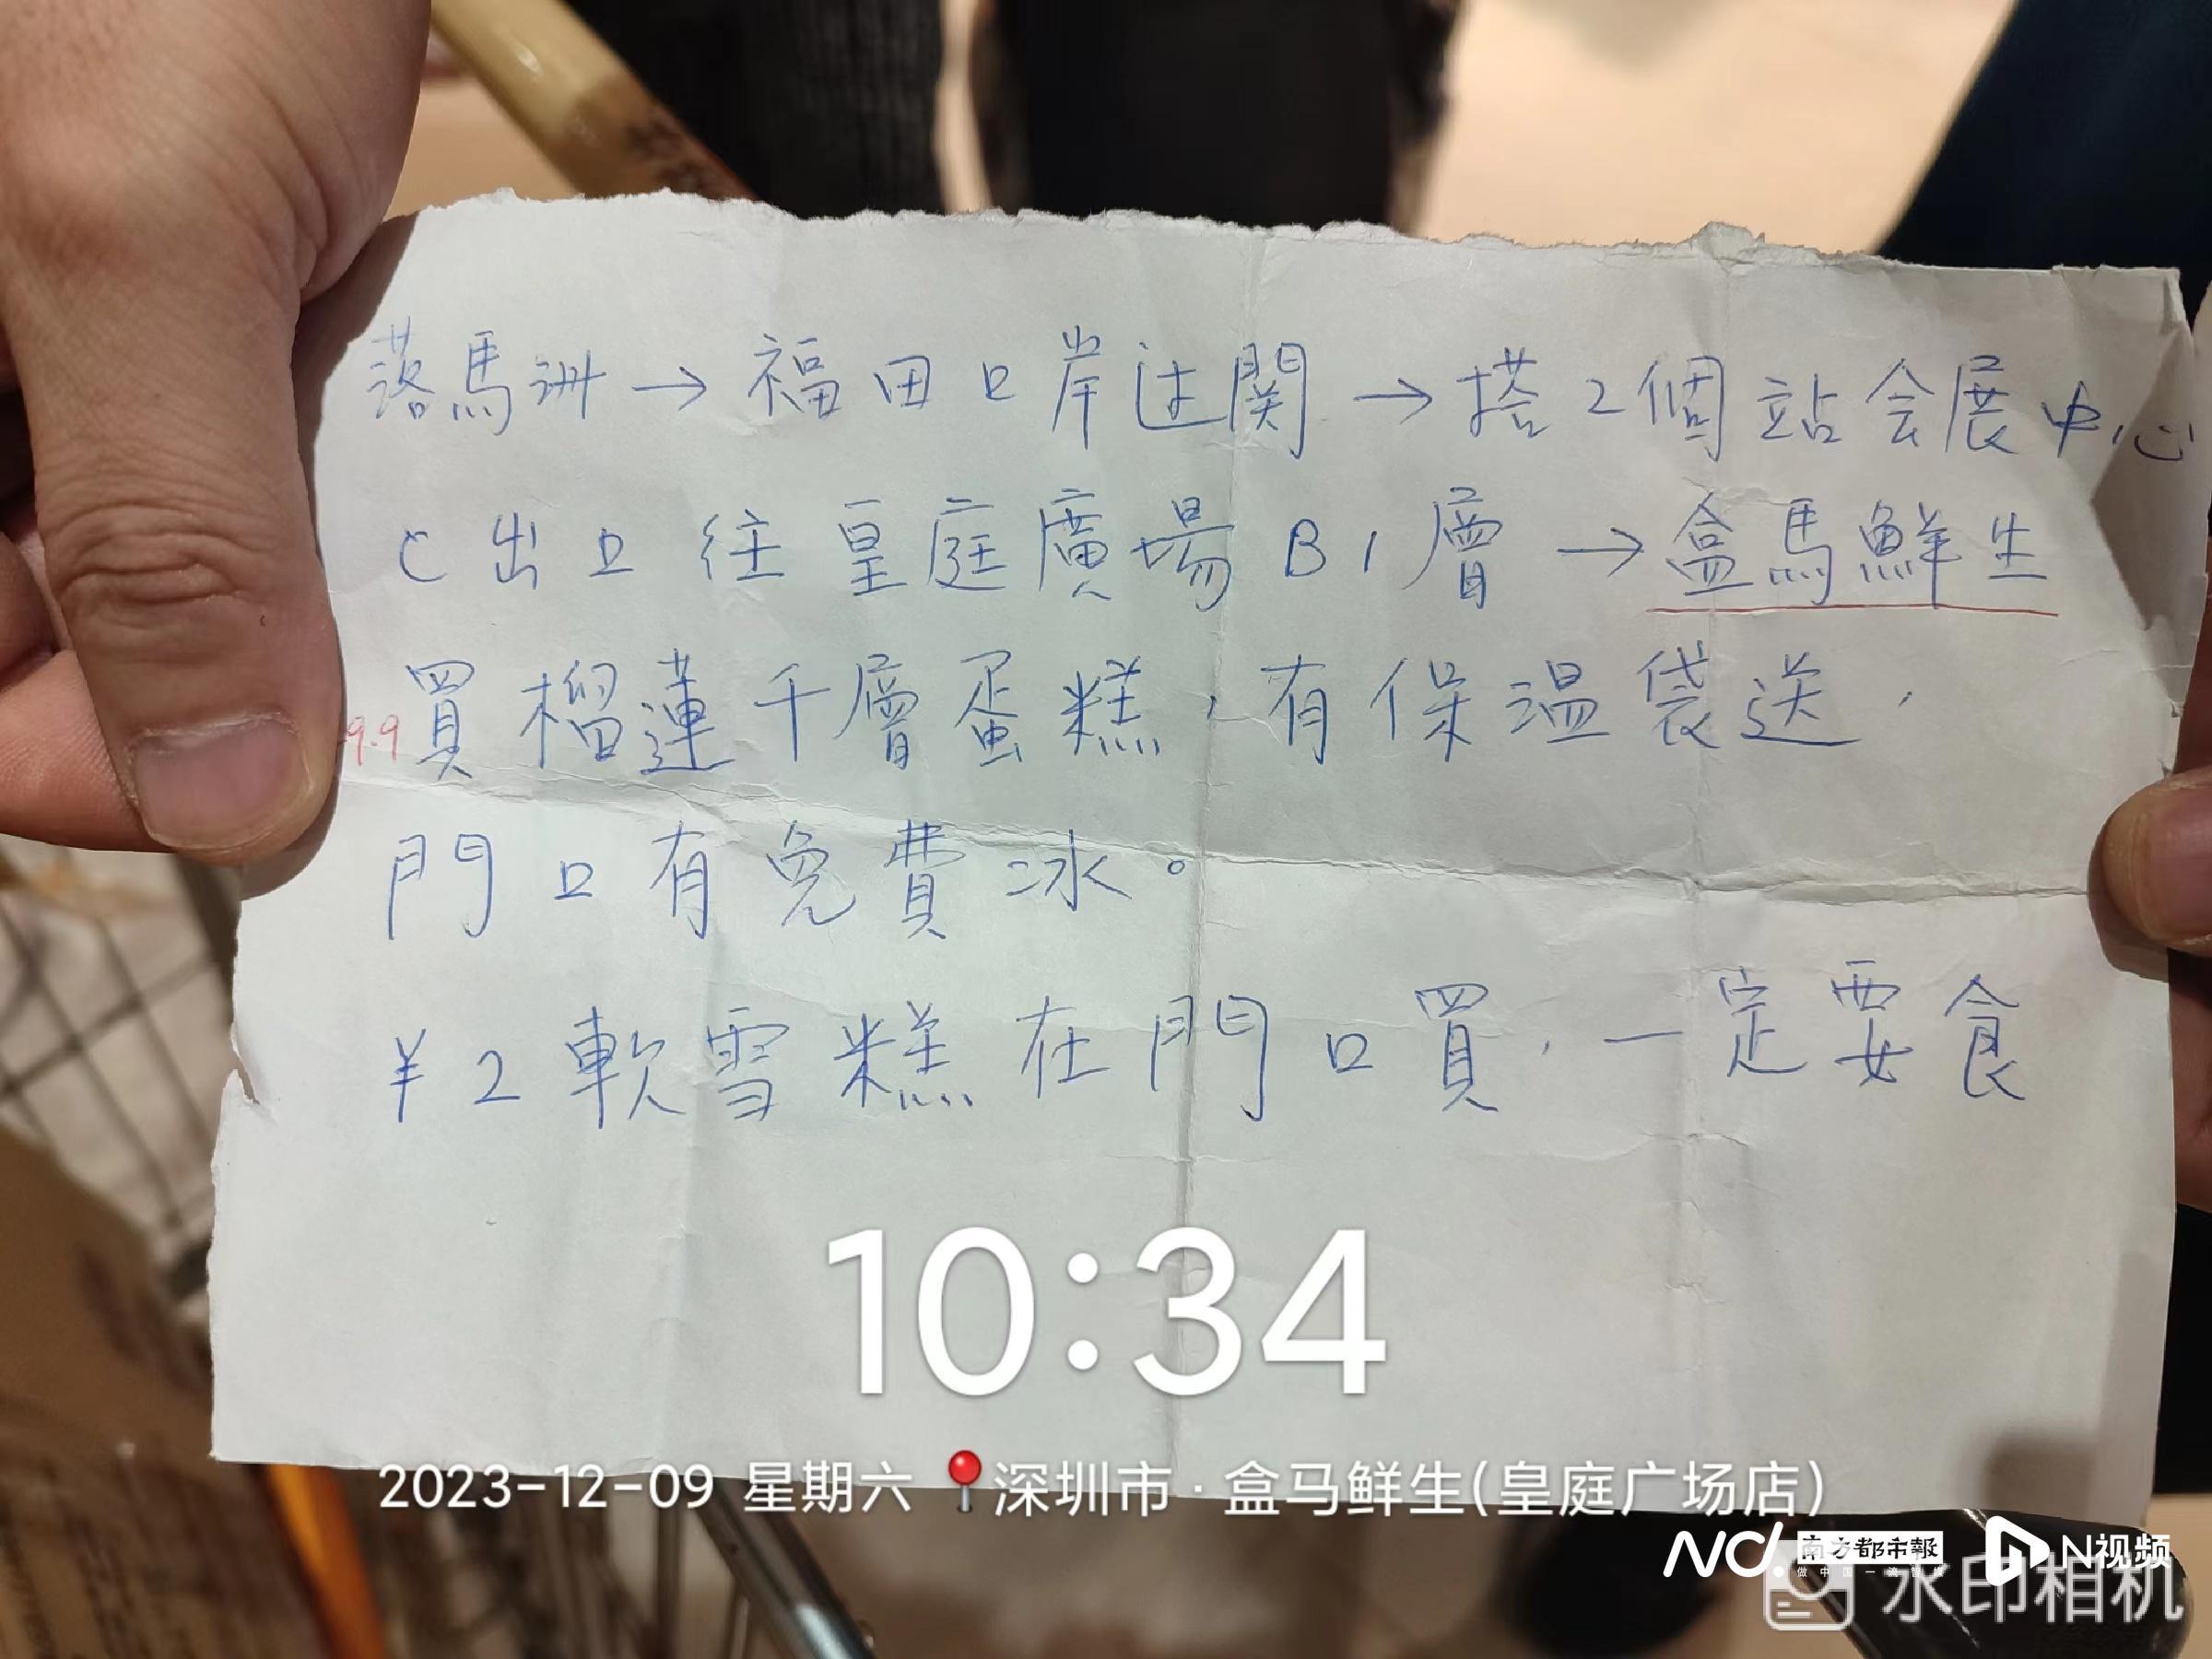 落馬洲→福田口岸过関→搭2個站会展中心
C出口往皇庭廣場B1層→盒馬鮮生
9.9買榴蓮千層蛋糕，有保温袋送，
門口有免費冰。
¥2軟雪糕在門口買，一定要食
10:34
2023-12-09 星期六 深圳市·盒马鲜生(皇庭广场店)
nd. 南方都市報 N视频
水印相机